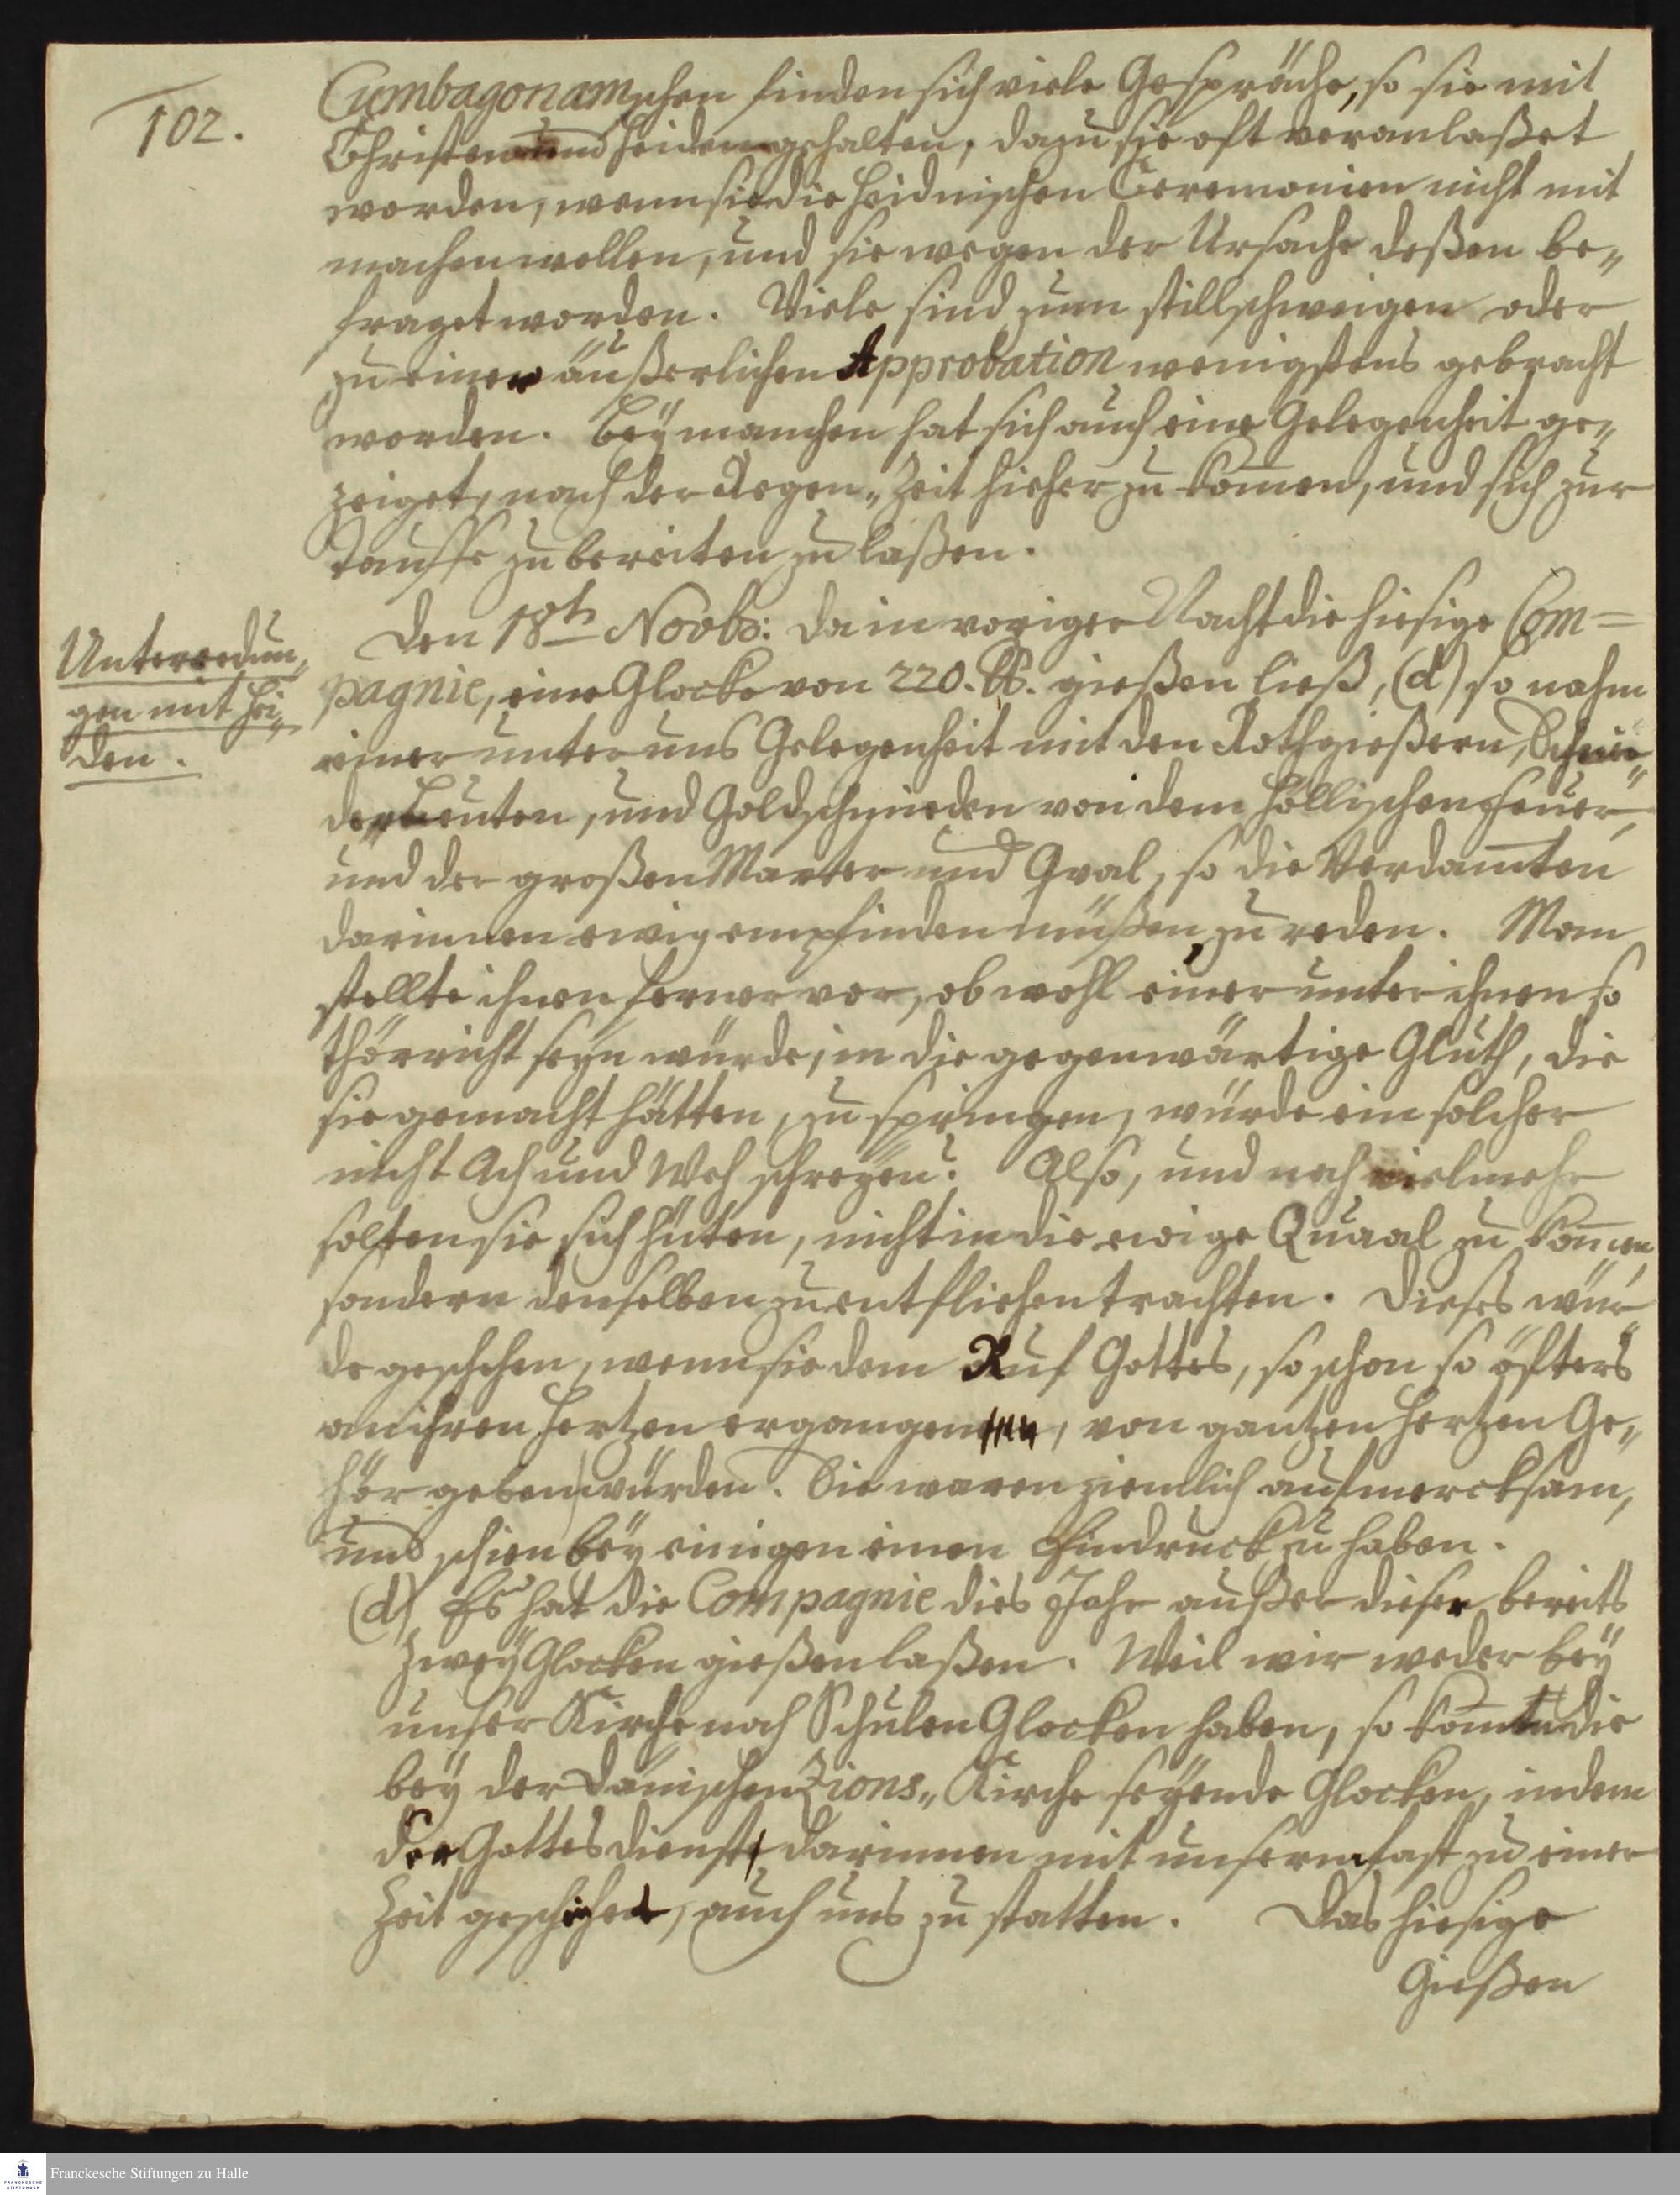 102.
Cumbagonamschen finden sich viele Gespräche, so sie mit
Christen und Heiden gehalten, dazu sie oft veranlaßet
worden, wenn sie die Heidnischen Ceremonien nicht mit
machen wollen, und sie wegen der Ursache deßen be„
fraget worden. Viele sind zum stillschweigen oder
zu einer äußerlichen Approbation wenigstens gebracht
worden. Bey manchen hat sich auch eine Gelegenheit ge„
zeiget, nach der Regen„Zeit hieher zu kom̄en, und sich zur
Tauffe zubereiten zu laßen.
Unterredun„
gen mit Hei„
den.
Den 18t Novbr: Da in voriger Nacht die hiesige Com=
pagnie, eine Glocke von 220. ℔. gießen ließ, (d) so nahm
einer unter uns Gelegenheit mit den Rothgießern,
der Leuten, und Goldschmieden von dem Höllischen Feuer,
und der großen Marter und Qval, so die Verdam̄ten
darinnen ewig empfinden müßen, zu reden. Man
stellte ihnen ferner vor, ob wohl einer unter ihnen so
thörricht seyn würde, in die gegenwärtige Gluth, die
sie gemacht hätten, zu springen, würde ein solcher
nicht Ach und Weh schreyen? Also, und noch vielmehr
solten sie sich hüten, nicht in die ewige Quaal zu kom̄en,
sondern denselben zu entfliehen trachten. Dieses wür„
de geschehen, wenn sie dem Ruf Gottes, so schon so öfters
an ihren Hertzen ergangen, von gantzen Hertzen Ge„
hör geben würden. Sie waren ziemlich aufmercksam,
und schien bey einigen einen Eindruck zu haben.
(d) Es hat die Compagnie dies Jahr außer dieser bereits
zwey Glocken gießen laßen. Weil wir weder bey
unser Kirche noch Schulen Glocken haben, so kom̄en die
bey der Dänischen Zions„Kirche seyende Glocken, indem
der Gottesdienst darinnen mit unserm fast zu einer
Zeit geschiehet, auch uns zu statten. Das hiesige
Gießen
Franckesche Stiftungen zu Halle